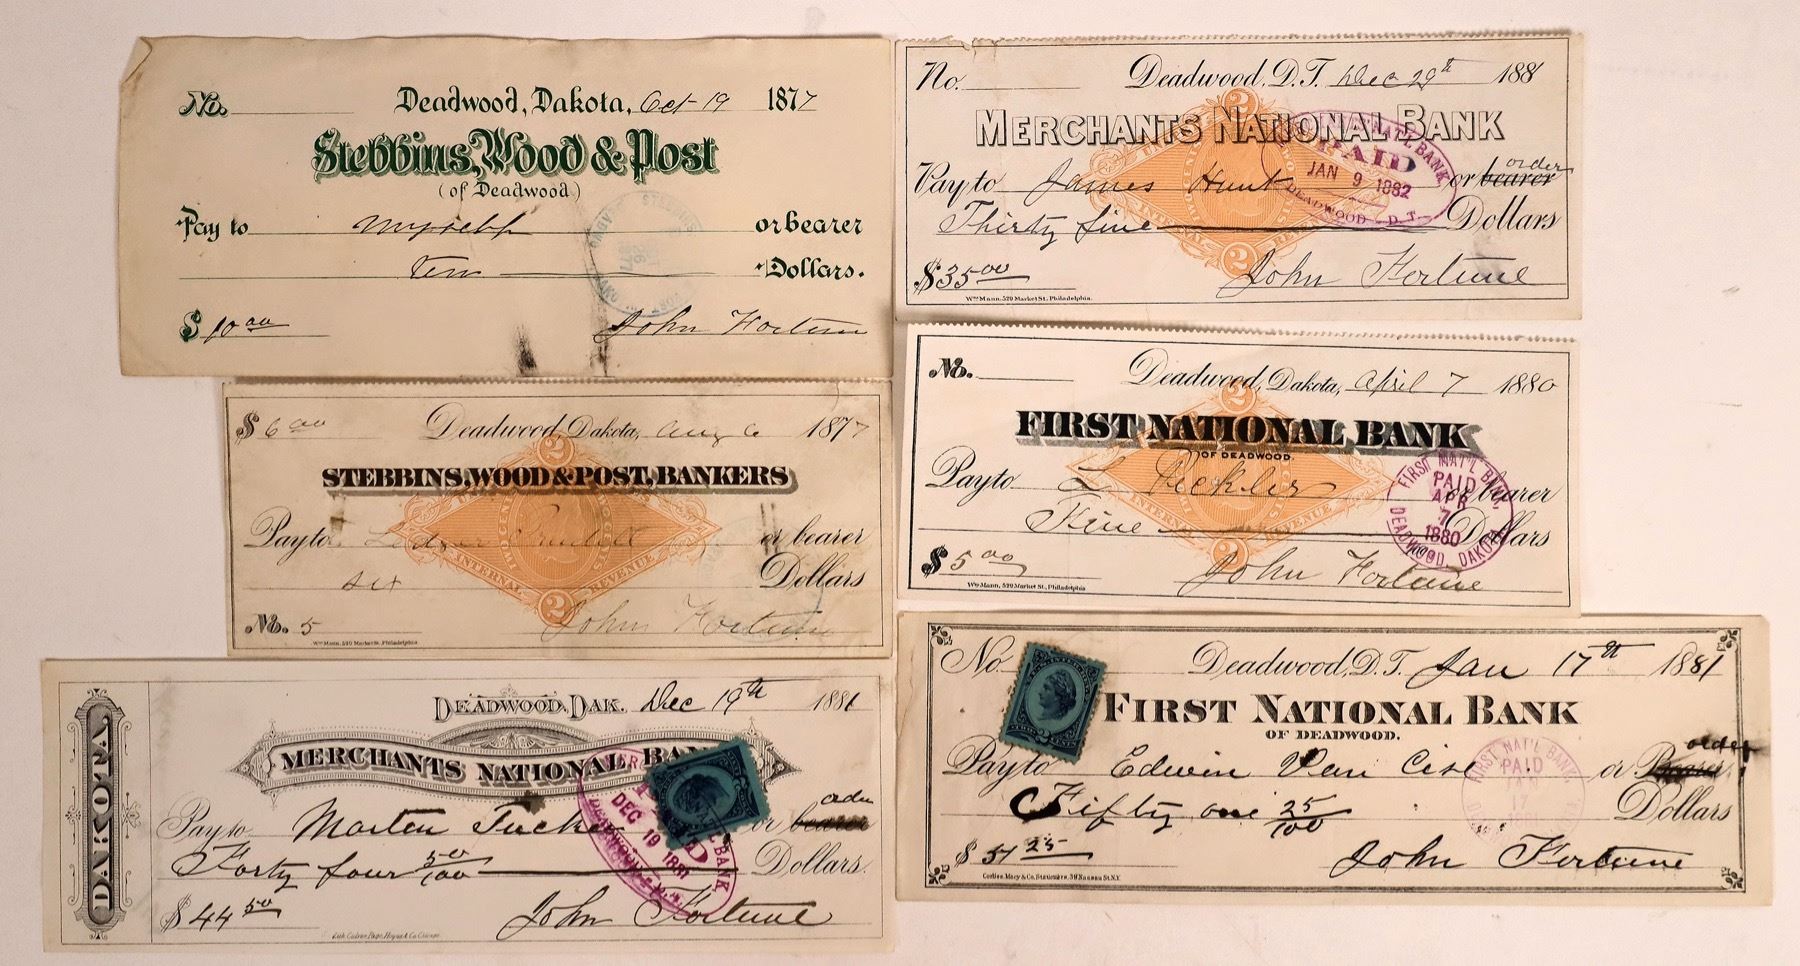 No. Deadwood, Dakota, Oct 19 1877
Stebbins, Wood & Post
(of Deadwood)
Pay to myself or bearer
Ten Dollars.
$ 10.00 John Fortune
No. Deadwood, D.T. Dec 29th 1881
MERCHANTS NATIONAL BANK
Pay to James Hunt or bearer order
Thirty five Dollars
$35.00 John Fortune
Wm Mann, 529 Market St., Philadelphia.
NAT'L BANK
PAID
JAN 9 1882
DEADWOOD D.T.
2
INTERNAL REVENUE
2
$6.00 Deadwood, Dakota, Aug 6 1877
STEBBINS, WOOD & POST, BANKERS
Pay to or bearer
six Dollars
No. 5 John Fortune
Wm Mann, 529 Market St., Philadelphia
2
INTERNAL REVENUE
2
No. Deadwood, Dakota, April 7 1880
FIRST NATIONAL BANK
OF DEADWOOD.
Pay to L Pickler or bearer
Five Dollars
$5.00 John Fortune
Wm Mann, 529 Market St., Philadelphia
FIRST NAT'L BANK,
PAID
APR
7
1880
DEADWOOD, DAKOTA
2
INTERNAL REVENUE
2
DAKOTA
DEADWOOD, DAK. Dec 19th 1881
MERCHANTS NATIONAL BANK
Pay to Morten Tucker or bearer order
Forty four 50/100 Dollars.
$44 50 John Fortune
DEC 19 1881
BANK
No. Deadwood, D.T. Jan 17th 1881
FIRST NATIONAL BANK
OF DEADWOOD.
Pay to Edwin Van Cise or Bearer order
Fifty one 25/100 Dollars
$51 25 John Fortune
FIRST NAT'L BANK,
PAID
JAN
17
2 CENTS